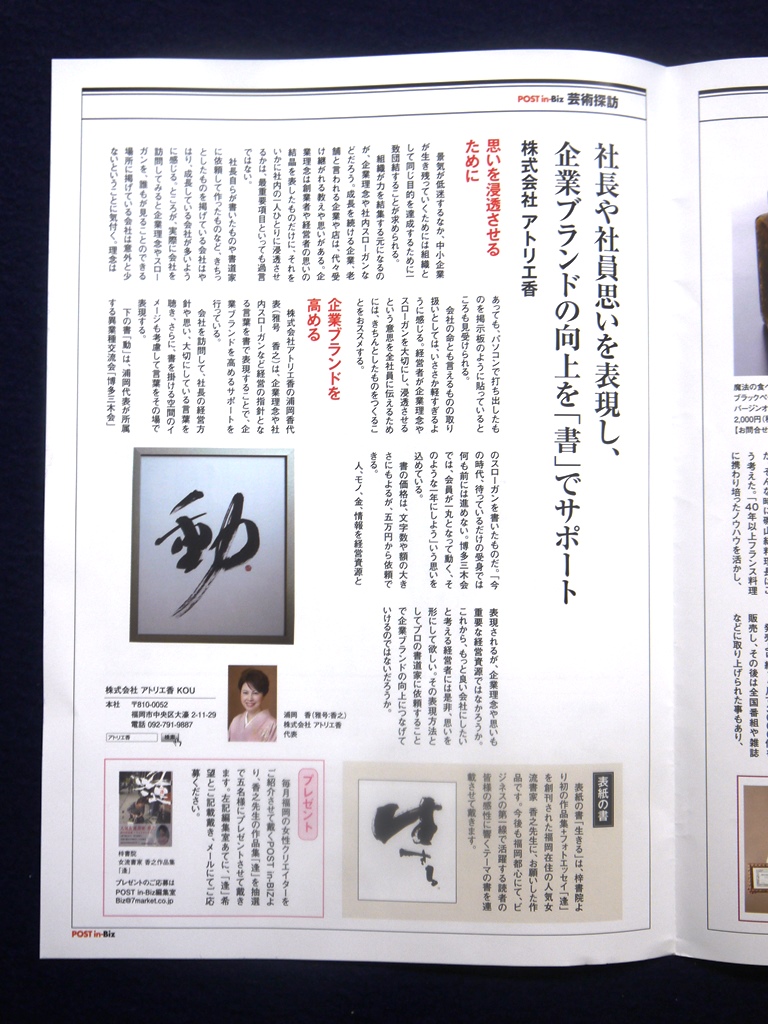 POST in-Biz 芸術探訪
社長や社員思いを表現し、
企業ブランドの向上を「書」でサポート
株式会社 アトリエ香
思いを浸透させる
ために
景気が低迷するなか、中小企業
が生き残っていくためには組織と
して同じ目的を達成するために一
致団結することが求められる。
組織が力を結集する元になるの
が、企業理念や社内スローガンな
どだろう。成長を続ける企業、老
舗と言われる企業や店は、代々受
け継がれる教えや思いがある。企
業理念は創業者や経営者の思いの
結晶を表したものだけに、それを
いかに社内の一人ひとりに浸透させ
るかは、最重要項目といっても過言
ではない。
社長自らが書いたものや書道家
に依頼して作ったものなど、きちっ
としたものを掲げている会社はや
はり、成長している会社が多いよう
に感じる。ところが、実際に会社を
訪問してみると企業理念やスロー
ガンを、誰もが見ることのできる
場所に掲げている会社は意外と少
ないということに気付く。理念は
あっても、パソコンで打ち出したも
のを掲示板のように貼っていると
ころも見受けられる。
会社の命とも言えるものの取り
扱いとしては、いささか軽すぎるよ
うに感じる。経営者が企業理念や
スローガンを大切にし、浸透させる
という意思を全社員に伝えるため
には、きちんとしたものをつくるこ
とをおススメする。
企業ブランドを
高める
株式会社アトリエ香の浦岡香代
表(雅号 香之)は、企業理念や社
内スローガンなど経営の指針とな
る言葉を書で表現することで、企
業ブランドを高めるサポートを
行っている。
会社を訪問して、社長の経営方
針や思い、大切にしている言葉を
聴き、さらに、書を掛ける空間のイ
メージも考慮して言葉をその場で
表現する。
下の書「動」は、浦岡代表が所属
する異業種交流会「博多三木会」
のスローガンを書いたものだ。「今
の時代、待っているだけの受身では
何も前には進めない。博多三木会
では、会員が一丸となって動く、そ
のような一年にしよう」いう思いを
込めている。
書の価格は、文字数や額の大き
さにもよるが、五万円から依頼で
きる。
人、モノ、金、情報を経営資源と
表現されるが、企業理念や思いも
重要な経営資源ではなかろうか。
これから、もっと良い会社にしたい
と考える経営者には是非、思いを
形にして欲しい。その表現方法と
してプロの書道家に依頼すること
で企業ブランドの向上につなげて
いけるのではないだろうか。
動
株式会社 アトリエ香 KOU
本社 〒810-0052
福岡市中央区大濠 2-11-29
電話 092-791-9887
アトリエ香 検索
浦岡 香(雅号:香之)
株式会社 アトリエ香
代表
表紙の書
表紙の書「生きる」は、梓書院よ
り初の作品集+フォトエッセイ「逢」
を創刊された福岡在住の人気女
流書家 香之先生に、お願いした作
品です。今後も福岡都心にて、ビ
ジネスの第一線で活躍する読者の
皆様の感性に響くテーマの書を連
載させて戴きます。
生きる
プレゼント
毎月福岡の女性クリエイターを
ご紹介させて戴くPOST in-BIZよ
り、香之先生の作品集「逢」を抽選
で五名様にプレゼントさせて戴き
ます。左記編集室あてに、「逢」希
望とご記載戴き、メールにてご応
募ください。
梓書院
女流書家 香之作品集
「逢」
プレゼントのご応募は
POST in-Biz編集室
Biz@7market.co.jp
POST in-Biz
魔法の食べ
ブラックペ
バージンオ
2,000円(税
【お問合せ
う考えた。「40年以上フランス料理
に携わり培ったノウハウを活かし、
販売し、その後は全国番組や雑誌
などに取り上げられた事もあり、